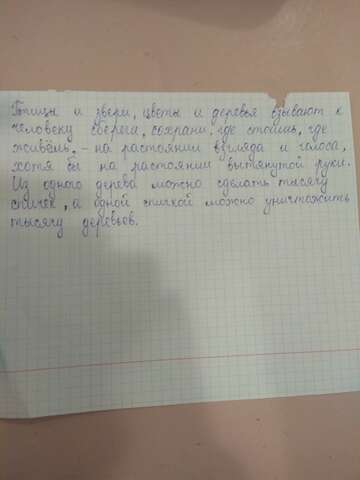 Птицы и звери, цветы и деревья взывают к
человеку сберега, сохрани, где стоишь, где
живёшь, - на растоянии взгляда и голоса,
хотя бы на растоянии вытянутой руки.
Из одного дерева можно сделать тысячу
спичек, а одной спичкой можно уничтожить
тысячу деревьев.